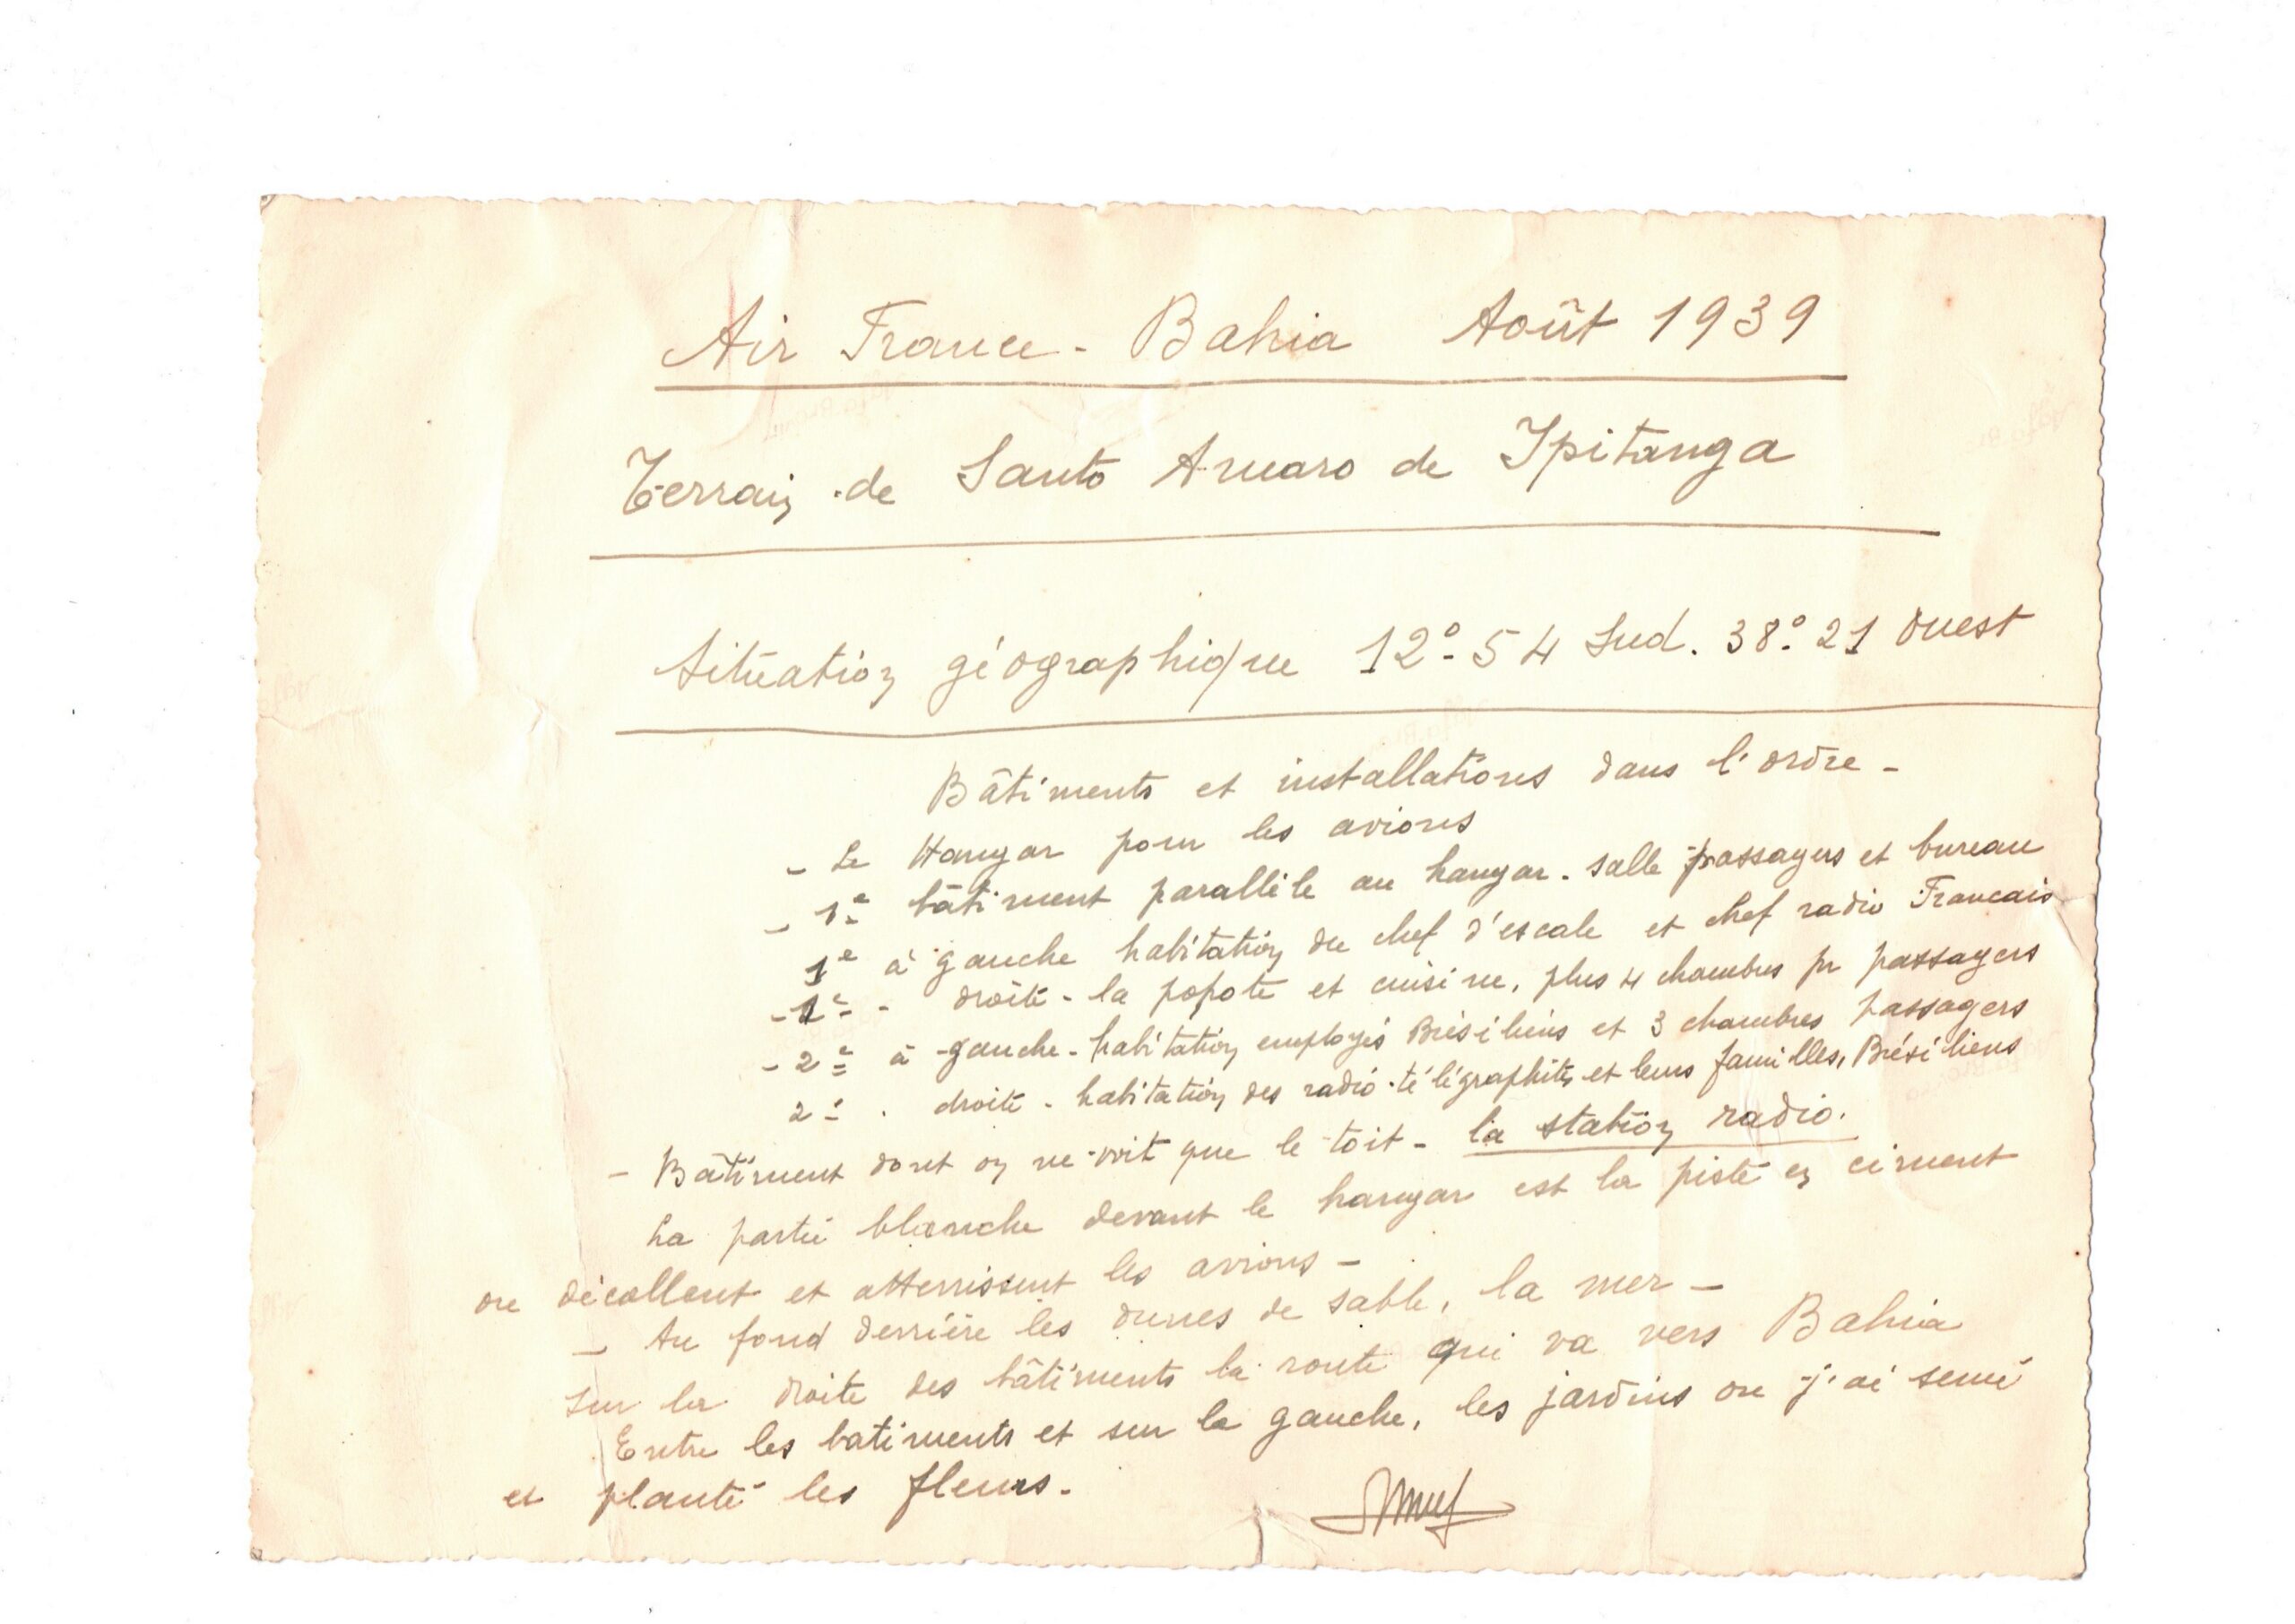 Air France - Bahia Août 1939
Terrain de Santo Amaro de Ipitanga
Situation géographique 12° 54 Sud. 38° 21 Ouest
Bâtiments et installations dans l'ordre -
- Le Hangar pour les avions
- 1e bâtiment parallèle au hangar - salle passagers et bureau
1e à gauche habitation du chef d'escale et chef radio Francais
- 1e - droite - la popote et cuisine, plus 4 chambres pr passagers
- 2e à gauche - habitation employés Brésiliens et 3 chambres passagers
2e - droite - habitation des radio-télégraphists et leurs familles, Brésiliens
- Bâtiment dont on ne voit que le toit - la station radio.
La partie blanche devant le hangar est la piste en ciment
ou décollent et atterrissent les avions -
- Au fond derrière les dunes de sable, la mer -
Sur la droite des bâtiments la route qui va vers Bahia
Entre les batiments et sur la gauche, les jardins ou j'ai semé
et planté les fleurs.